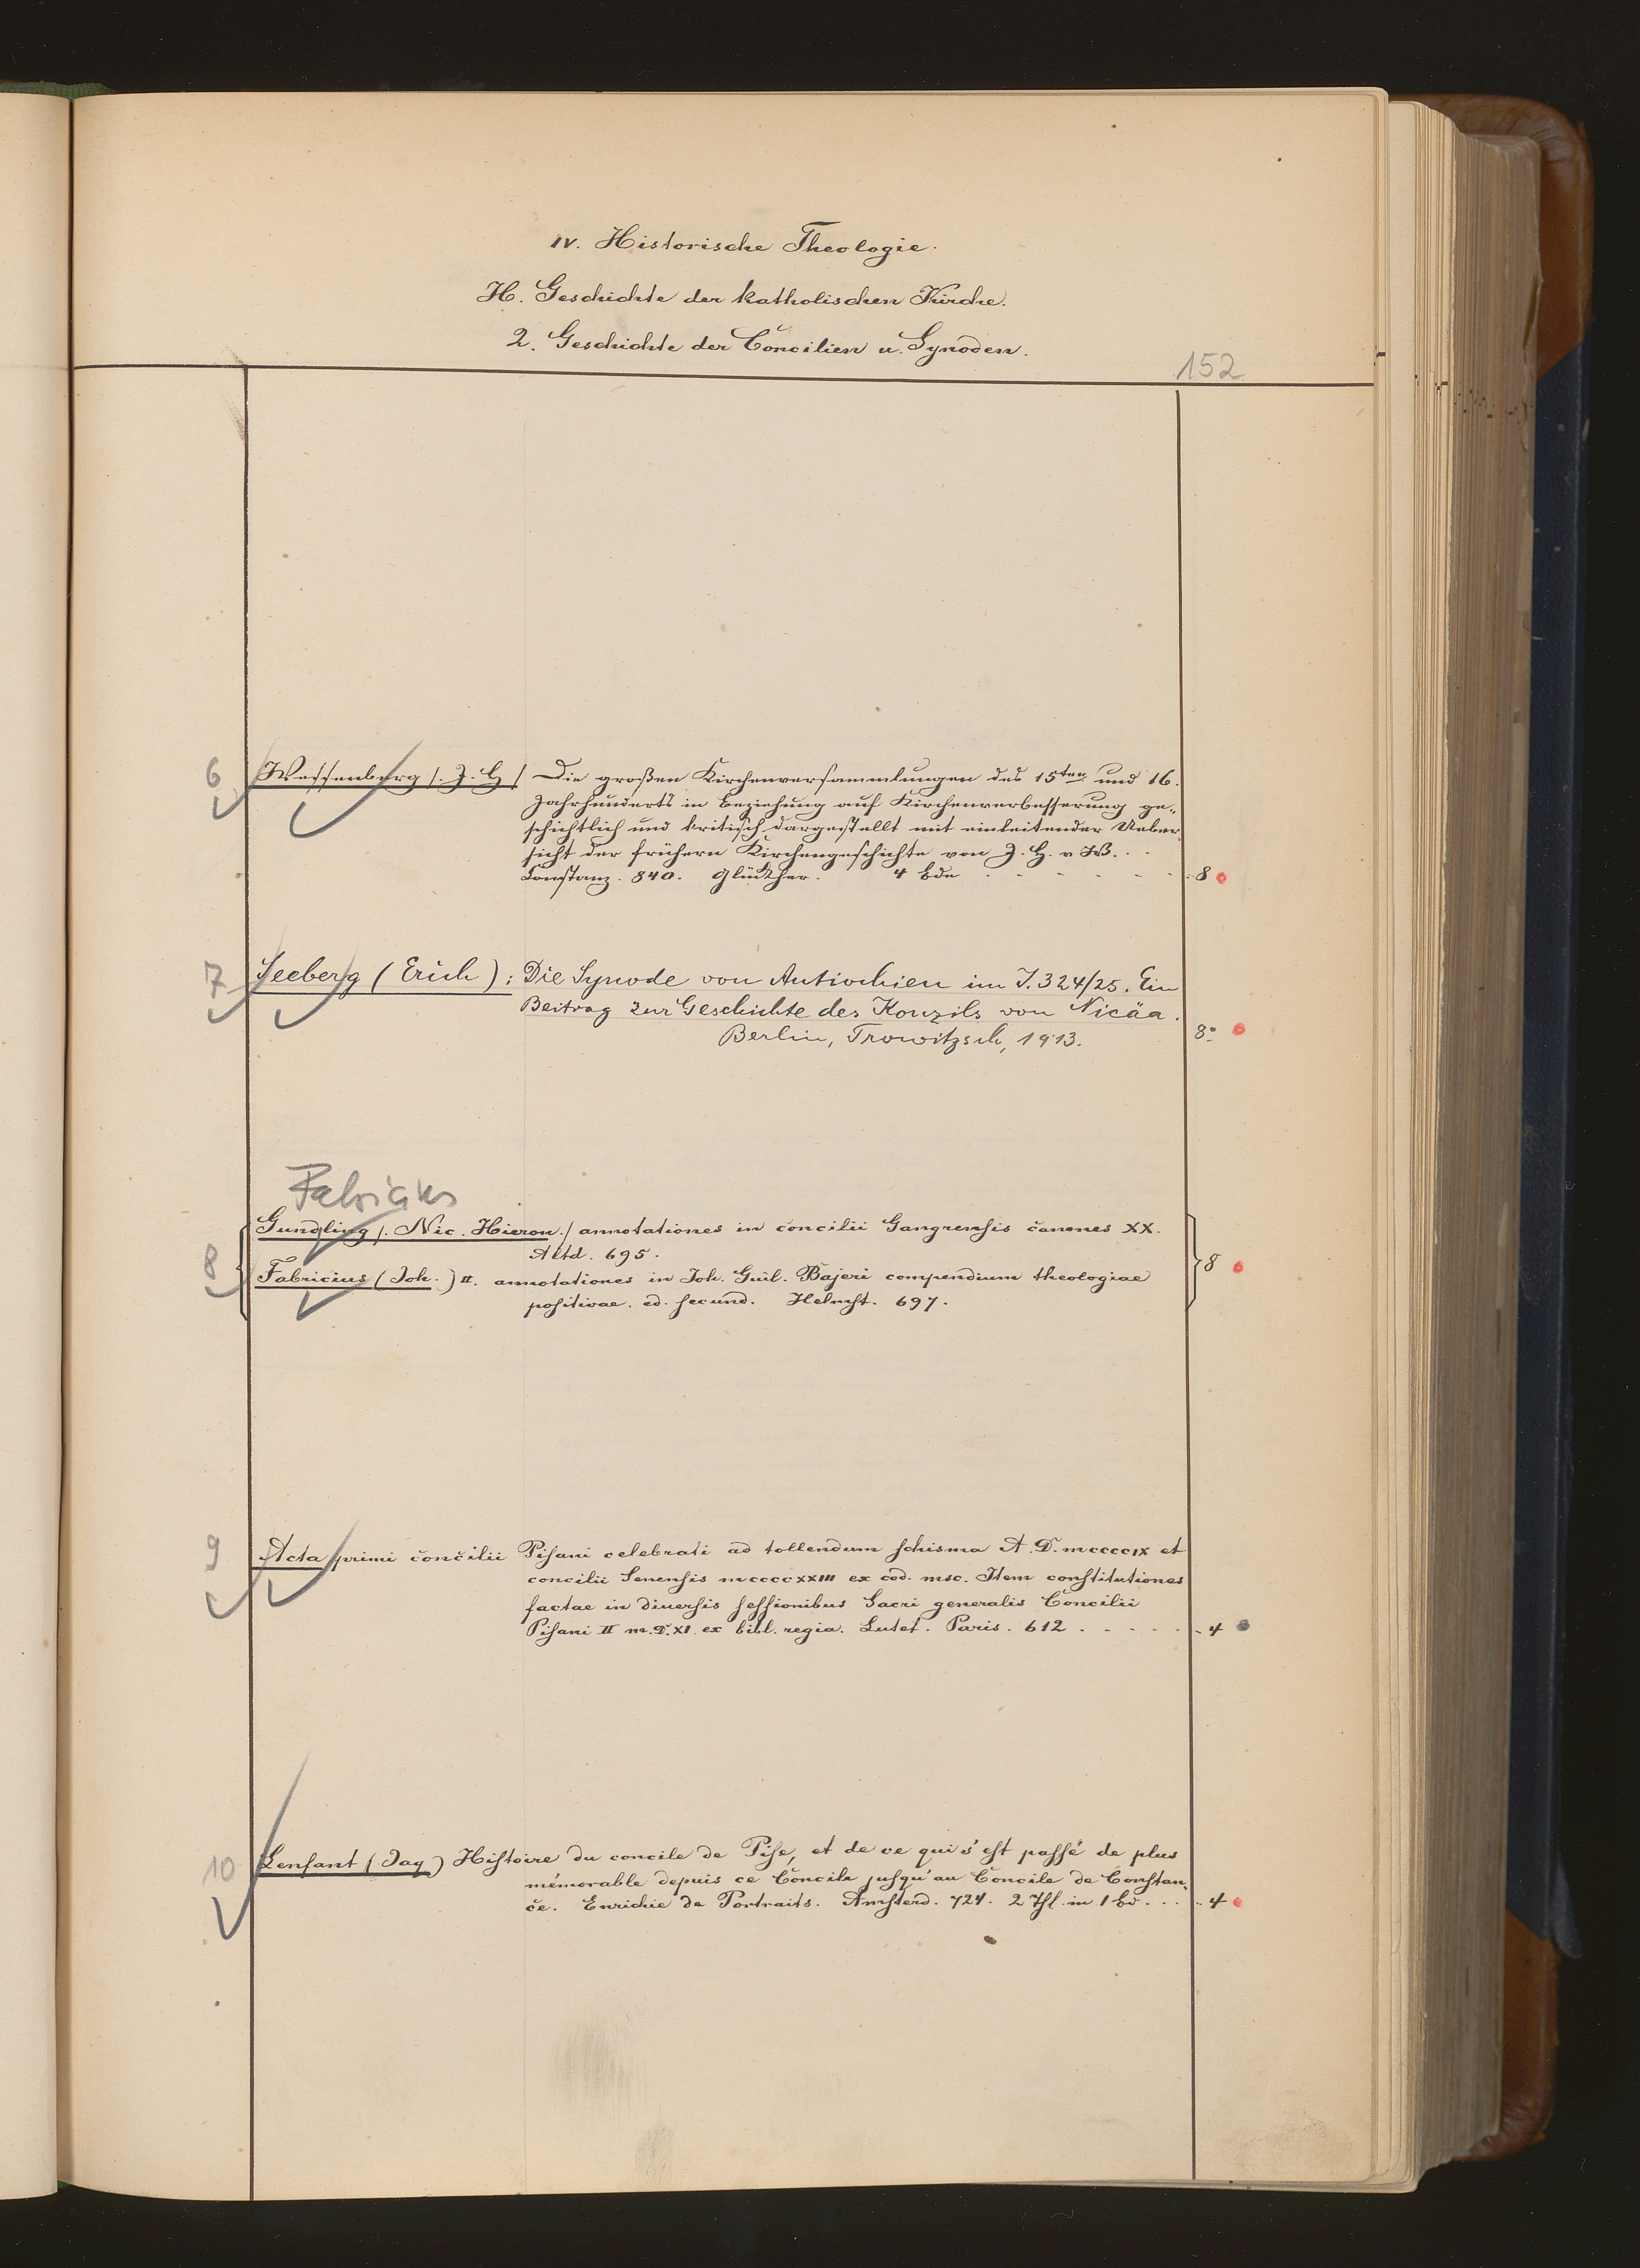 IV. Historische Theologie.
H. Geschichte der katholischen Kirche.
2. Geschichte der Concilien u. Synoden.
152
6 Wessenberg /. J. H / Die großen Kirchenversammlungen des 15ten und 16.
Jahrhunderts in Beziehung auf Kirchenverbesserung ge-
schichtlich und kritisch dargestellt mit einleitender Ueber-
sicht der frühern Kirchengeschichte von J. H. v W. . .
Constanz. 840. Glükher. 4 Bde . - - - - - - 8
7 Seeberg (Erich): Die Synode von Antiochien im J. 324/25. Ein
Beitrag zur Geschichte des Konzils von Nicäa.
Berlin, Trowitzsch, 1913. 8°
Fabricius
Gundling /. Nic. Hieron. / annotationes in concilii Gangrensis canones XX.
Altd. 695.
8 8
Fabricius (Joh.) II. annotationes in Joh. Guil. Bajeri compendium theologiae
positivae. ed. secund. Helmst. 697.
9 Acta primi concilii Pisani celebrati ad tollendum schisma A. D. mccccix et
concilii Senensis mccccxxiii ex cod. msc. Item constitutiones
factae in diversis sessionibus Sacri generalis Concilii
Pisani II m.D.XI. ex bibl. regia. Lutet. Paris. 612 . - - - - 4
10 Lenfant (Jaq) Histoire du concile de Pise, et de ce qui s'est passé de plus
mémorable depuis ce Concile jusqu'au Concile de Constan-
ce. Enrichie de Portraits. Amsterd. 724. 2 Thl. in 1 Bd. . . . 4